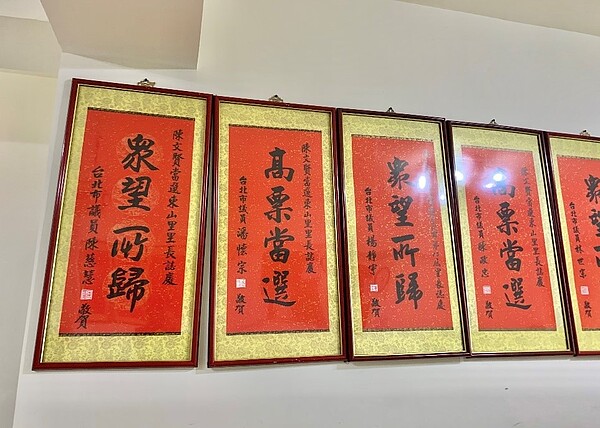 陳文賢當選東山里里長誌慶
眾望所歸
台北市議員陳慈慧 敬賀
陳文賢當選東山里里長誌慶
高票當選
台北市議員潘懷宗 敬賀
里長誌慶
眾望所歸
台北市議員楊靜宇 敬賀
陳文賢當選東山里里長誌慶
高票當選
台北市議員陳政忠 敬賀
眾望所歸
台北市議員林世宗 敬賀